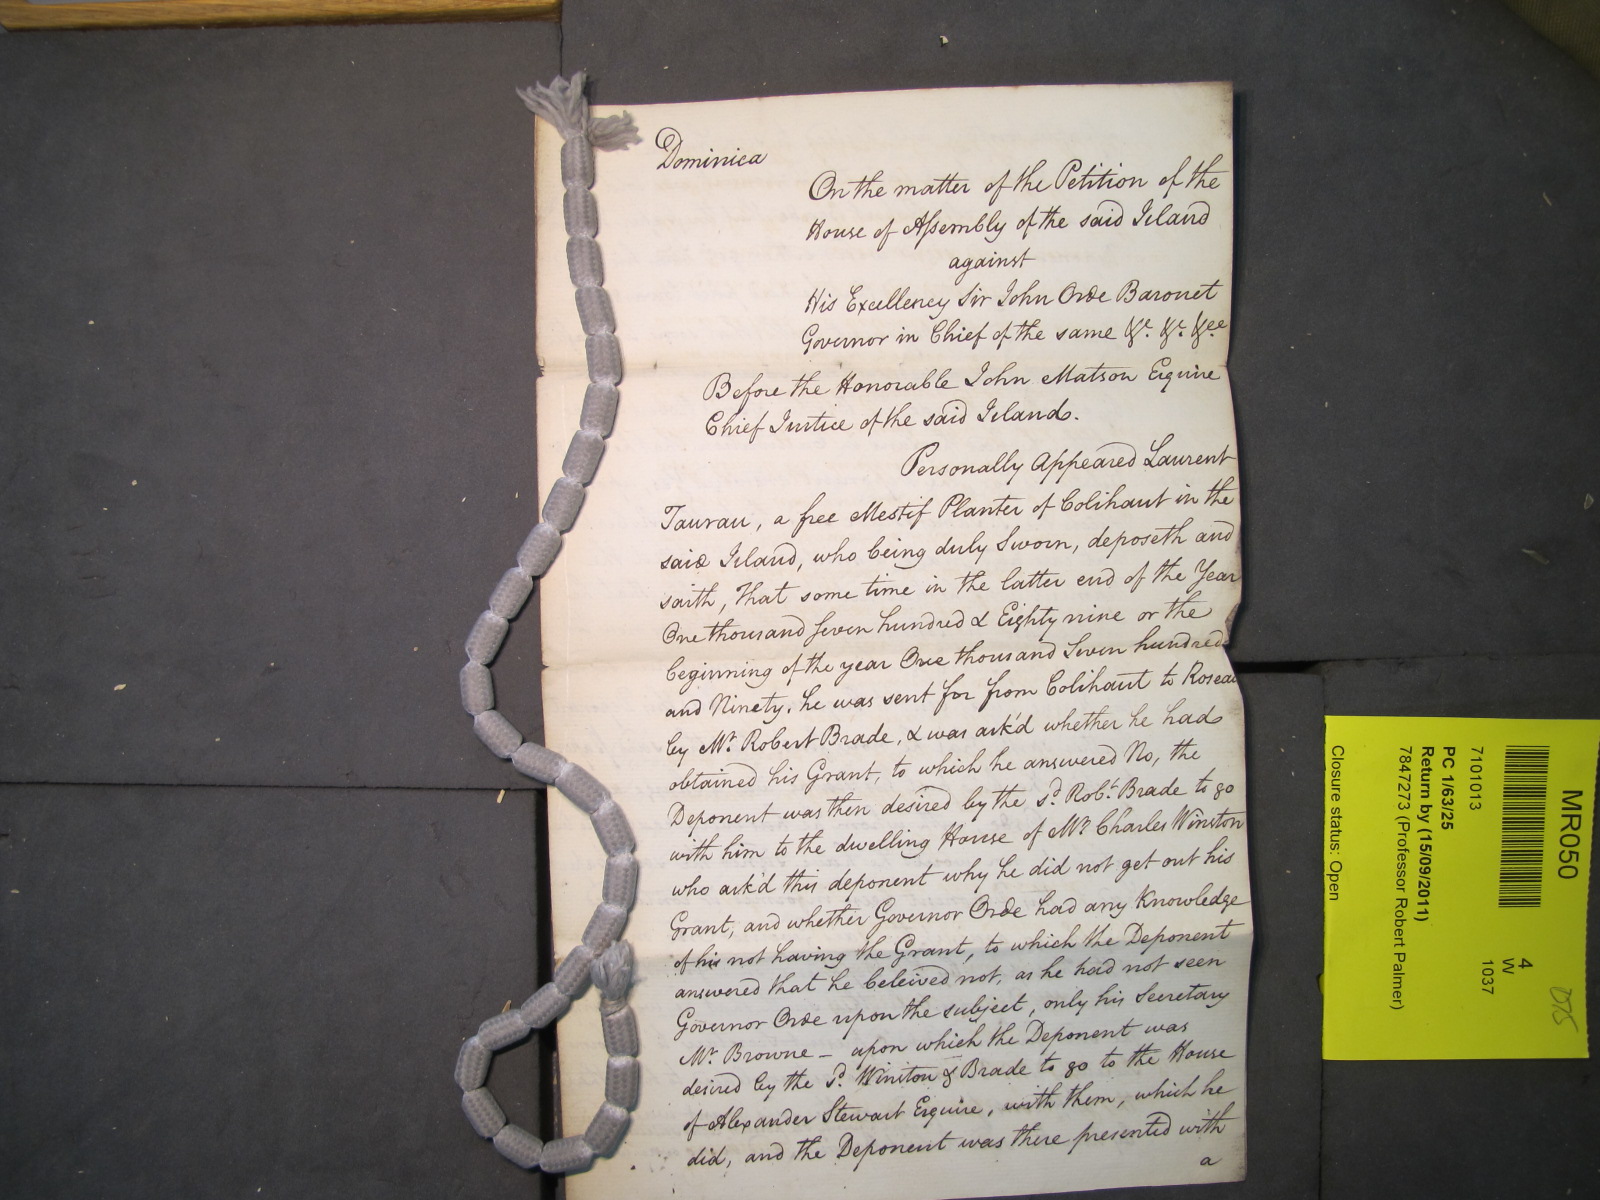 Dominica
On the matter of the Petition of the
House of Assembly of the said Island
against
His Excellency Sir John Orde Baronet
Governor in Chief of the same &c. &c. &ca
Before the Honorable John Matson Esquire
Chief Justice of the said Island.
Personally Appeared Laurent
Taurau, a free Mestif Planter of Colihaut in the
said Island, who being duly Sworn, deposeth and
saith, That some time in the latter end of the Year
One thousand Seven hundred & Eighty nine or the
beginning of the year One thousand Seven hundred
and Ninety, he was sent for from Colihaut to Roseau
by Mr. Robert Brade, & was ask'd whether he had
obtained his Grant, to which he answered No, the
Deponent was then desired by the sd. Robt. Brade to go
with him to the dwelling House of Mr. Charles Winston
who ask'd this deponent why he did not get out his
Grant, and whether Governor Orde had any Knowledge
of his not having the Grant, to which the Deponent
answered that he beleived not, as he had not seen
Governor Orde upon the subject, only his Secretary
Mr. Browne – upon which the Deponent was
desired by the sd. Winston & Brade to go to the House
of Alexander Stewart Esquire, with them, which he
did, and the Deponent was there presented with
a
MR050
7101013
PC 1/63/25
Return by (15/09/2011)
7847273 (Professor Robert Palmer)
Closure status: Open
4
W
1037